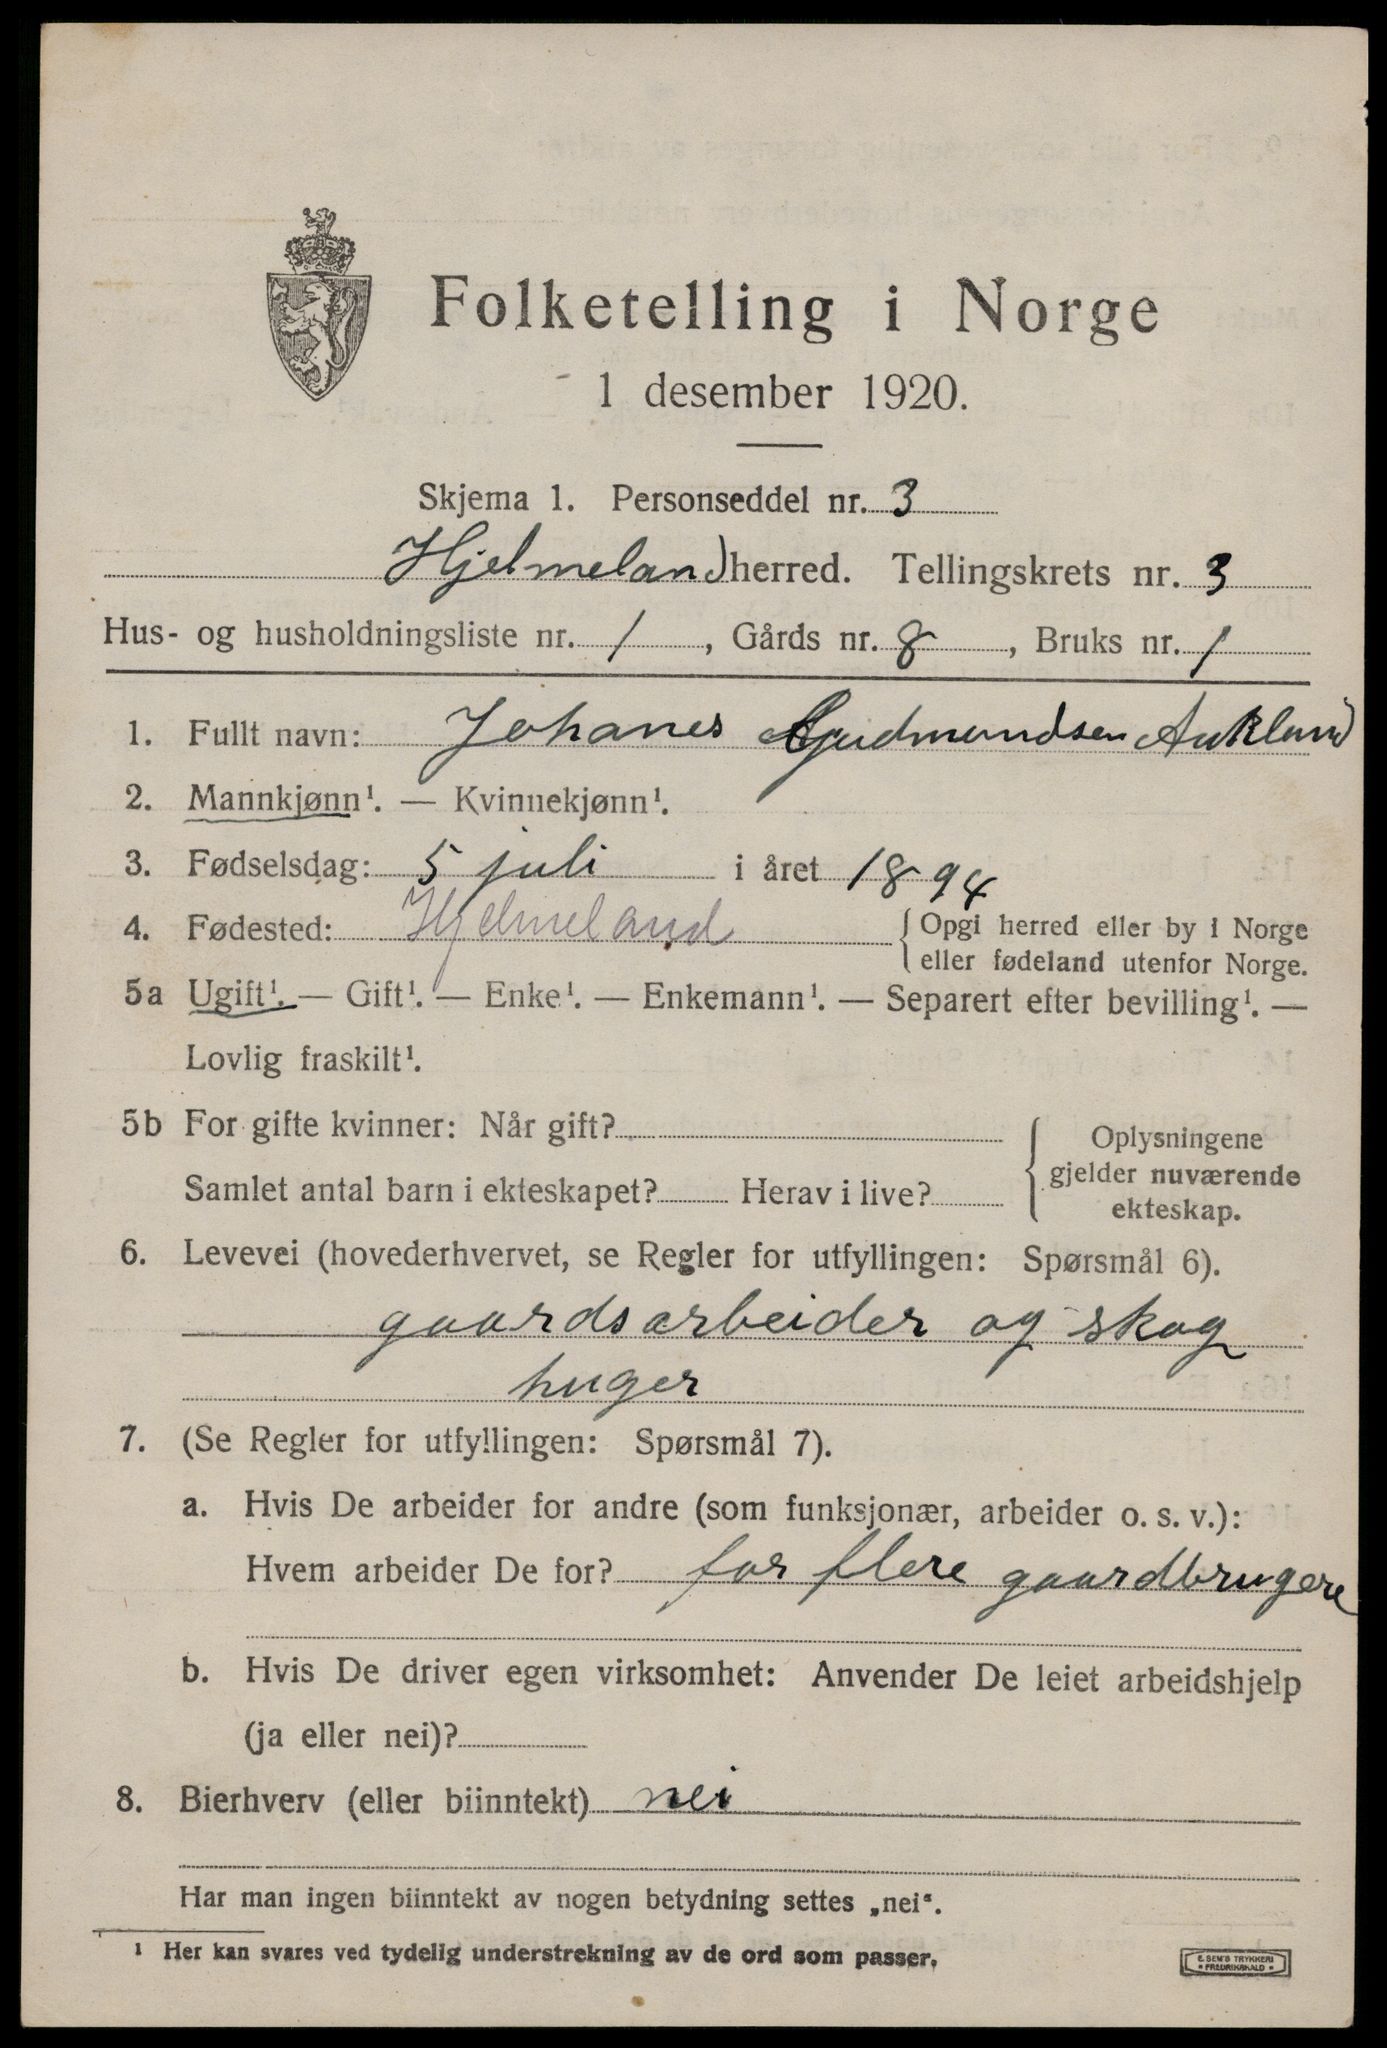 Folketelling i Norge
1 desember 1920.
Skjema 1. Personseddel nr. 3
Hjelmeland herred. Tellingskrets nr. 3
Hus- og husholdningsliste nr. 1, Gårds nr. 8, Bruks nr. 1
1. Fullt navn: Johanes Gudmundsen Aukland
2. Mannkjønn¹. — Kvinnekjønn¹.
3. Fødselsdag: 5 juli i året 1894
4. Fødested: Hjelmeland { Opgi herred eller by i Norge
eller fødeland utenfor Norge.
5a Ugift¹. — Gift¹. — Enke¹. — Enkemann¹. — Separert efter bevilling¹. —
Lovlig fraskilt¹.
5b For gifte kvinner: Når gift?
Samlet antal barn i ekteskapet? Herav i live?
{ Oplysningene
gjelder nuværende
ekteskap.
6. Levevei (hovederhvervet, se Regler for utfyllingen: Spørsmål 6).
gaardsarbeider og skog
huger
7. (Se Regler for utfyllingen: Spørsmål 7).
a. Hvis De arbeider for andre (som funksjonær, arbeider o. s. v.):
Hvem arbeider De for? for flere gaardbrugere
b. Hvis De driver egen virksomhet: Anvender De leiet arbeidshjelp
(ja eller nei)?
8. Bierhverv (eller biinntekt) nei
Har man ingen biinntekt av nogen betydning settes „nei“.
¹ Her kan svares ved tydelig understrekning av de ord som passer.
E. SEM'S TRYKKERI
* FREDRIKSHALD *